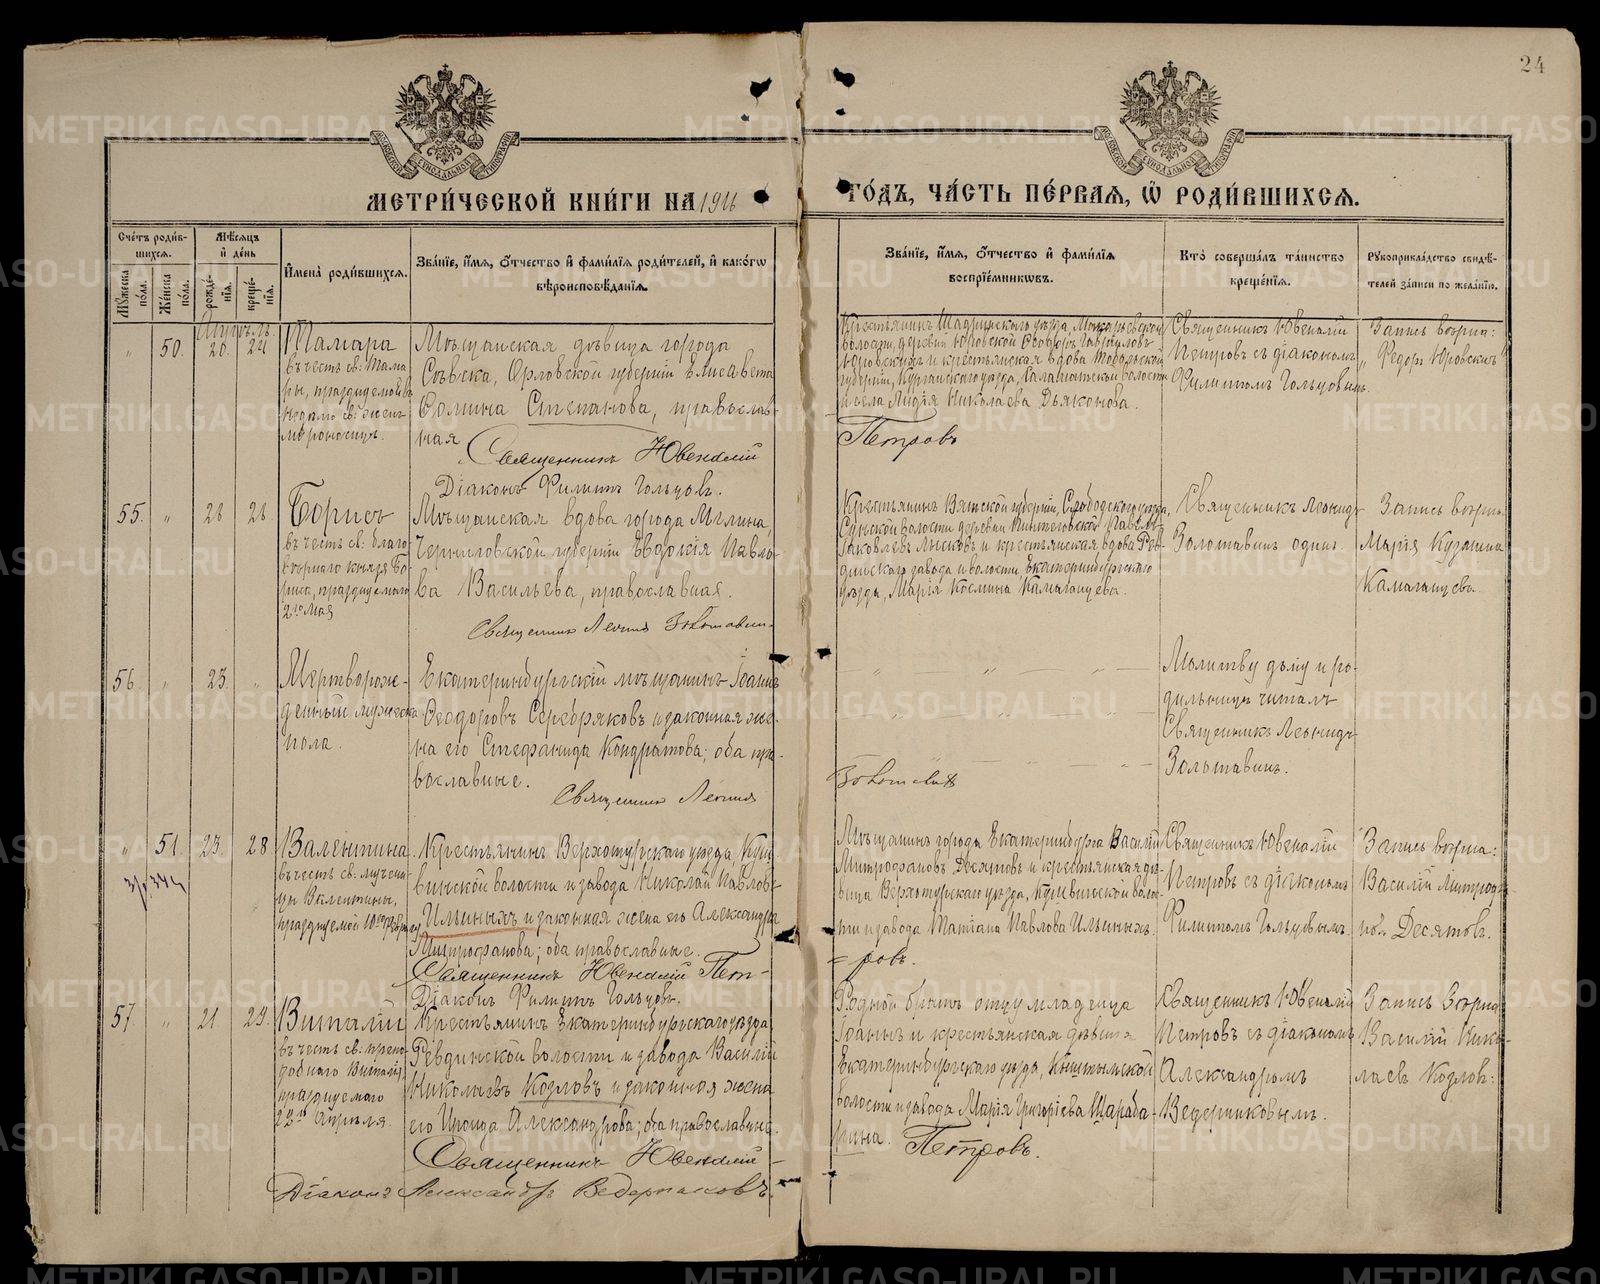 24
МЕТРИ́ЧЕСКОЙ КНИ́ГИ НА 1916
ГО́ДЪ, ЧА́СТЬ ПЕ́РВАЯ, Ѡ҆ РОДИ́ВШИХСЯ.
Сче́тъ роди́в-
шихся.
Мꙋжеска по́ла.
Же́нска по́ла.
Мѣ́сяцъ
и҆ де́нь
рожде́-
нїя.
креще́-
нїя.
И҆мена̀ роди́вшихся.
Зва́нїе, и҆́мя, ѻ҆́тчество и҆ фами́лїя роди́телей, и҆ како́гѡ
вѣроисповѣ́данїя.
Зва́нїе, и҆́мя, ѻ҆́тчество и҆ фами́лїя
воспрїе́мникѡвъ.
Кто̀ соверша́лъ та́инство
креще́нїя.
Рꙋкоприкла́дство свидѣ́-
телей за́писи по жела́нїю.
Апрѣль
„ 50. 20. 24
Тамара
въ честь св: Тама
ры, празднуемой въ
недѣлю св: женъ
мѵроносицъ.
Мѣщанская дѣвица города
Сѣвска, Орловской губерніи Елисавета
Ѳомина Степанова, православ
ная
Священникъ Ювеналій
Діаконъ Филиппъ Гольцовъ.
Крестьянинъ Шадринскаго уѣзда, Макарьевской
волости, деревни Юровской Ѳеодоръ Гавриловъ
Юровскихъ и крестьянская вдова Тобольской
губерніи, Курганскаго уѣзда, Саламатской волости
и села Лидія Николаева Дьяконова.
Петровъ
Священникъ Ювеналій
Петровъ съ діакономъ
Филиппомъ Гольцовымъ.
Запись воспр:
„Федоръ Юровскихъ“
55. „ 23 28.
Борисъ
въ честь св: благо
вѣрнаго князя Бо
риса, празднуемаго
2го Мая
Мѣщанская вдова города Мглина,
Черниговской губерніи Евдокія Павло
ва Васильева, православная.
Священникъ Леонидъ Золотавинъ
Крестьянинъ Вятской губерніи, Слободского уѣзда,
Яковлевъ Лысковъ и крестьянская вдова Рев
динскаго завода и волости, Екатеринбургскаго
уѣзда, Марія Космина Камаганцева.
Священникъ Леонидъ
Золотавинъ одинъ.
Запись воспр.
Марія Кузьмина
Камаганцева
56. „ 23. „
Мертворож-
денный мужеска
пола.
Екатеринбургскій мѣщанинъ Іоаннъ
Ѳеодоровъ Серебряковъ и законная же-
на его Стефанида Кондратова; оба пра-
вославные.
Священникъ Леонидъ
Золотавинъ
Молитву дому и ро-
дильницѣ читалъ
Священникъ Леонидъ
Золотавинъ.
„ 51 23. 28
Валентина
въ честь св: мучени
цы Валентины,
празднуемой 10го Февралу
Крестьянинъ Верхотурскаго уѣзда, Куш
винской волости и завода Николай Павловъ
Ильиныхъ и законная жена его Александра
Митрофанова; оба православные.
Священникъ Ювеналій Пет-
Діаконъ Филиппъ Гольцовъ.
Мѣщанинъ города Екатеринбурга Василій
Митрофановъ Десятовъ и крестьянская дѣ-
вица Верхотурскаго уѣзда, Кушвинской воло-
сти и завода Татіана Павлова Ильиныхъ.
= ровъ.
Священникъ Ювеналій
Петровъ съ діакономъ
Филиппомъ Гольцовымъ.
Запись воспр:
Василій Митроф
Десятовъ.
57. „ 21 24.
Виталій
въ честь св: препо
добнаго Виталія
празднуемаго
22го Апрѣля.
Крестьянинъ Екатеринбургскаго уѣзда
Ревдинской волости и завода Василій
Николаевъ Козловъ и законная жена
его Ираида Александрова; оба православные.
Священникъ Ювеналій
Діаконъ Александръ Ведерниковъ.
Родной братъ отцу младенца
Іоаннъ и крестьянская дѣвица
Екатеринбургскаго уѣзда, Кыштымской
волости и завода Марія Григоріева Шараба-
рина.
Петровъ.
Священникъ Ювеналій
Петровъ съ діакономъ
Александромъ
Ведерниковымъ.
Запись воспр
Василій Нико-
лаевъ Козловъ:
METRIKI.GASO-URAL.RU